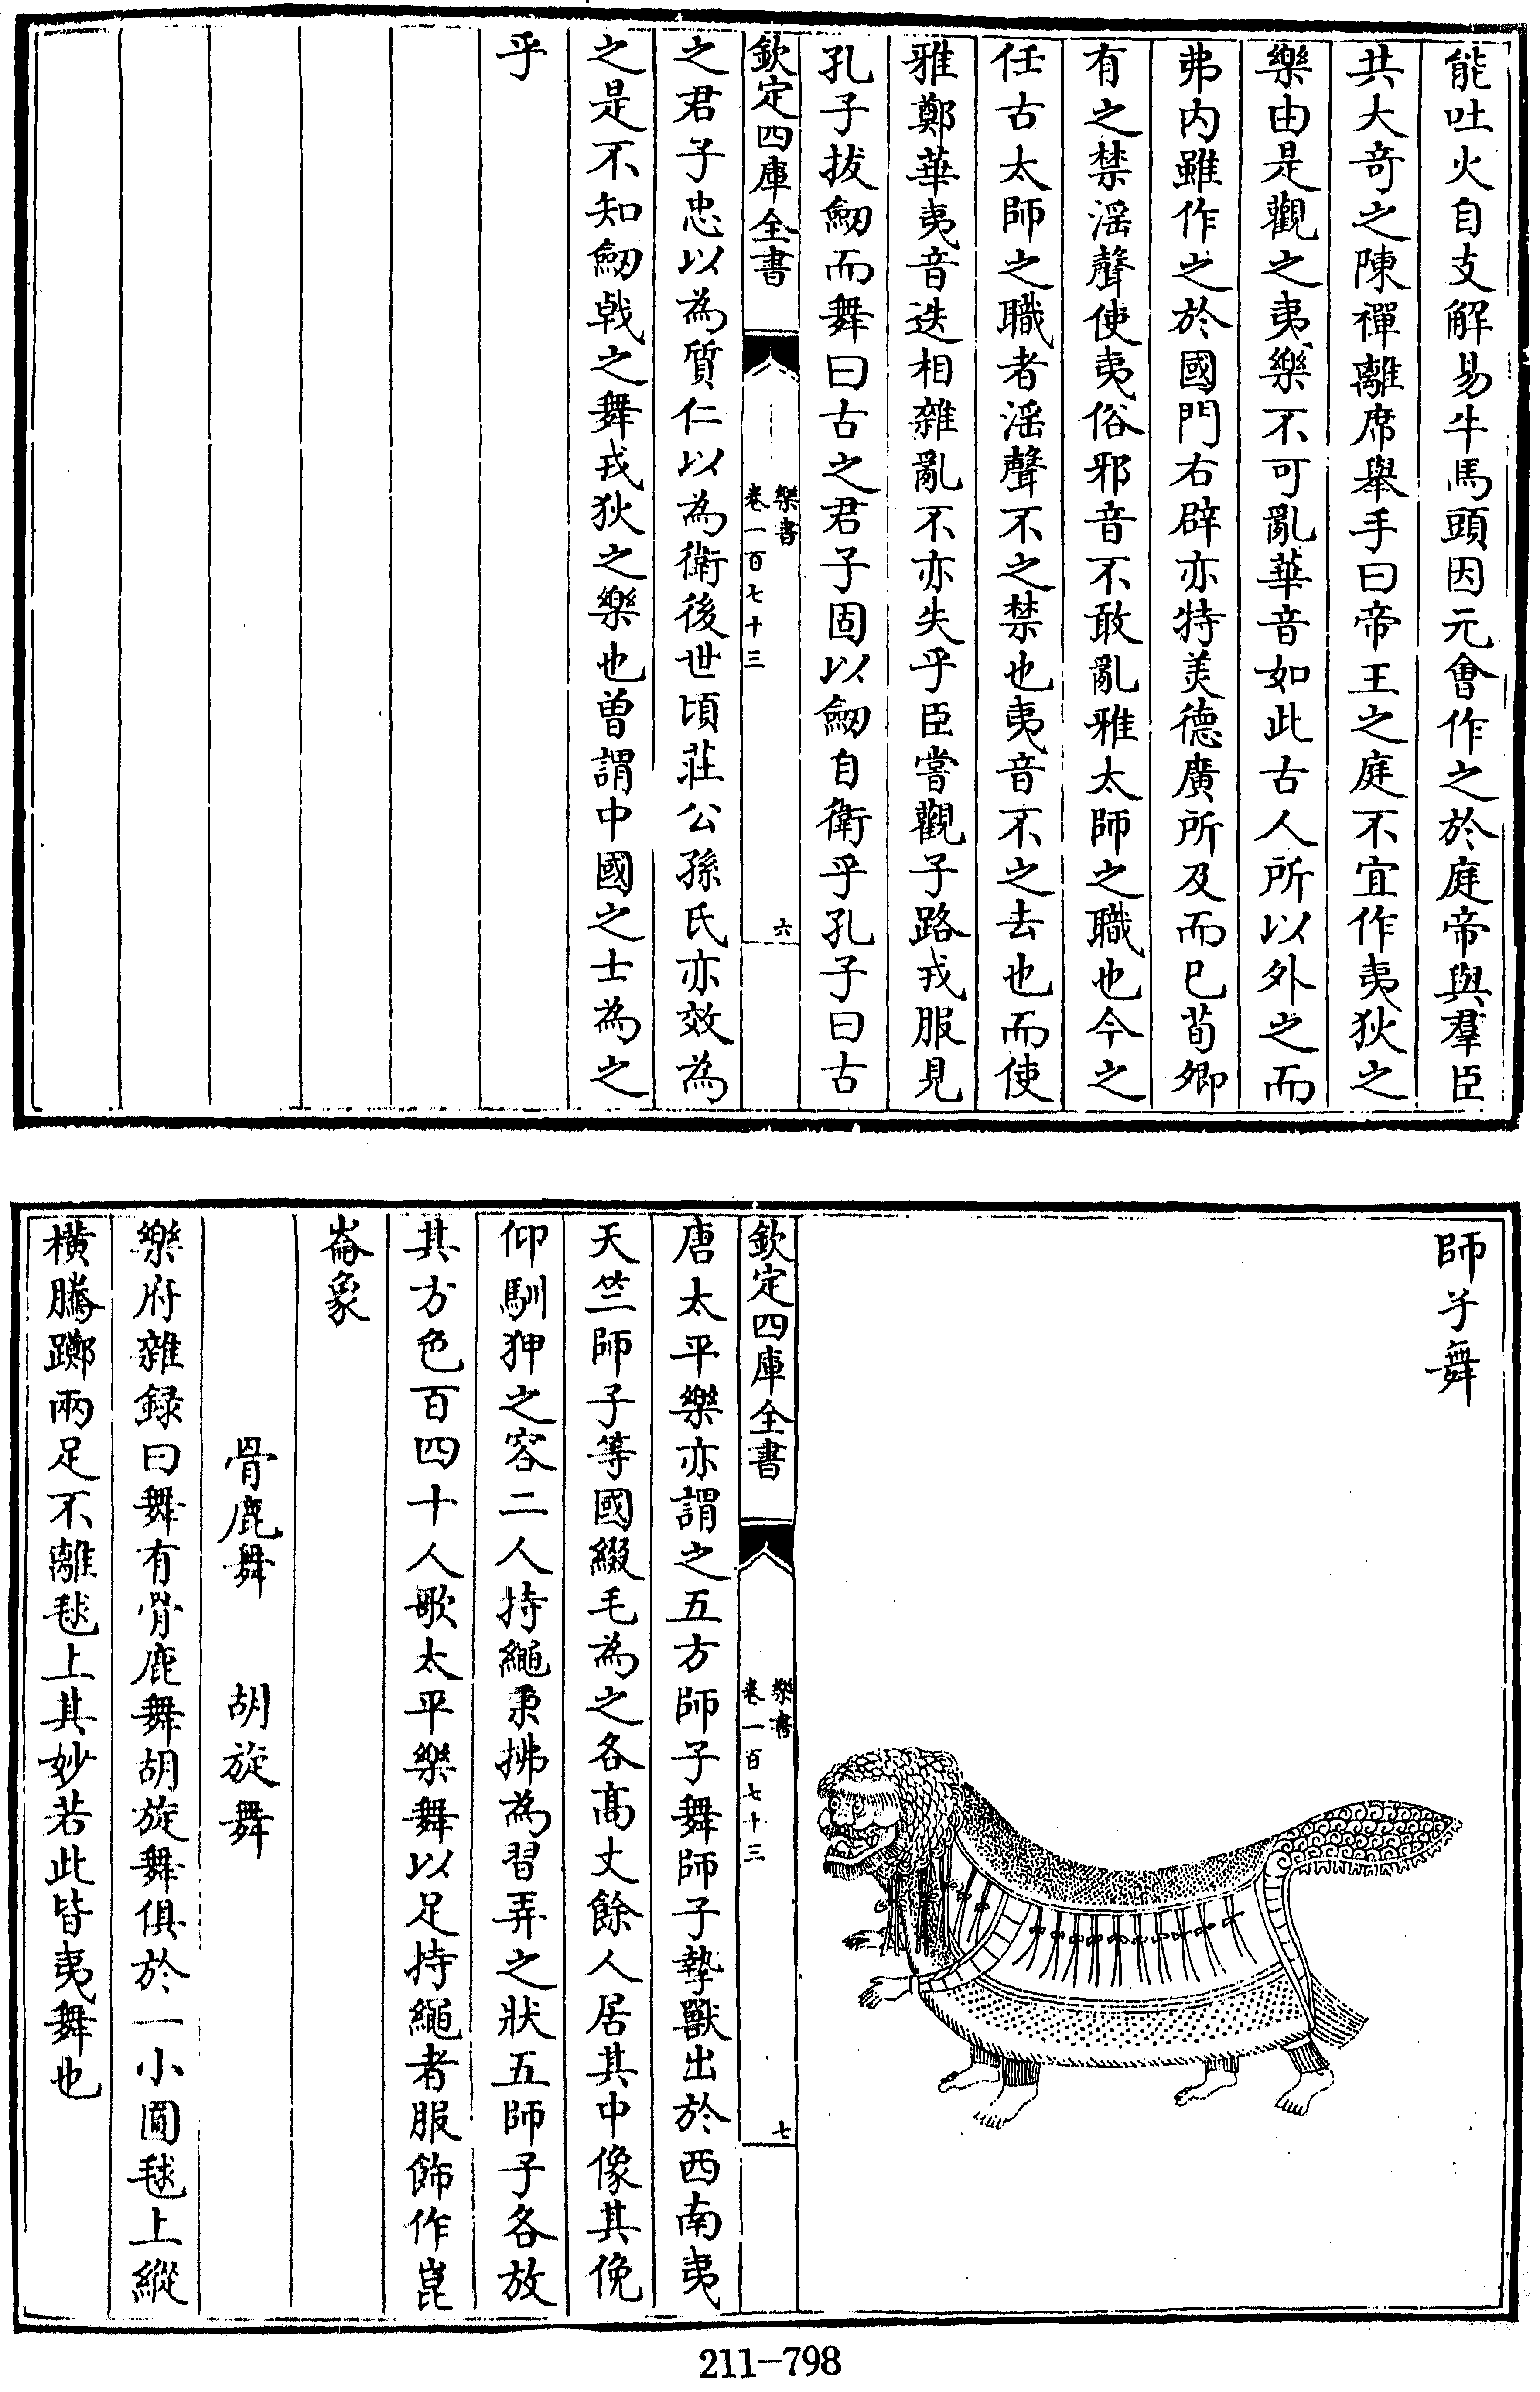 能吐火自支解易牛馬頭因元會作之於庭帝與羣臣
共大奇之陳禪離席舉手曰帝王之庭不宜作夷狄之
樂由是觀之夷樂不可亂華音如此古人所以外之而
弗内雖作之於國門右辟亦特美德廣所及而已荀卿
有之禁淫聲使夷俗邪音不敢亂雅太師之職也今之
任古太師之職者淫聲不之禁也夷音不之去也而使
雅鄭華夷音迭相雜亂不亦失乎臣嘗觀子路戎服見
孔子拔劒而舞曰古之君子固以劒自衛乎孔子曰古
欽定四庫全書
樂書
卷一百七十三
六
之君子忠以為質仁以為衛後世項莊公孫氏亦效為
之是不知劒戟之舞戎狄之樂也曽謂中國之士為之
乎
師子舞
欽定四庫全書
樂書
卷一百七十三
七
唐太平樂亦謂之五方師子舞師子摯獸出於西南夷
天竺師子等國綴毛為之各髙丈餘人居其中像其俛
仰馴狎之容二人持繩秉拂為習弄之狀五師子各放
其方色百四十人歌太平樂舞以足持繩者服飾作崑
崙象
骨鹿舞 胡旋舞
樂府雜録曰舞有骨鹿舞胡旋舞俱於一小圓毬上縱
橫騰擲兩足不離毬上其妙若此皆夷舞也
211-798